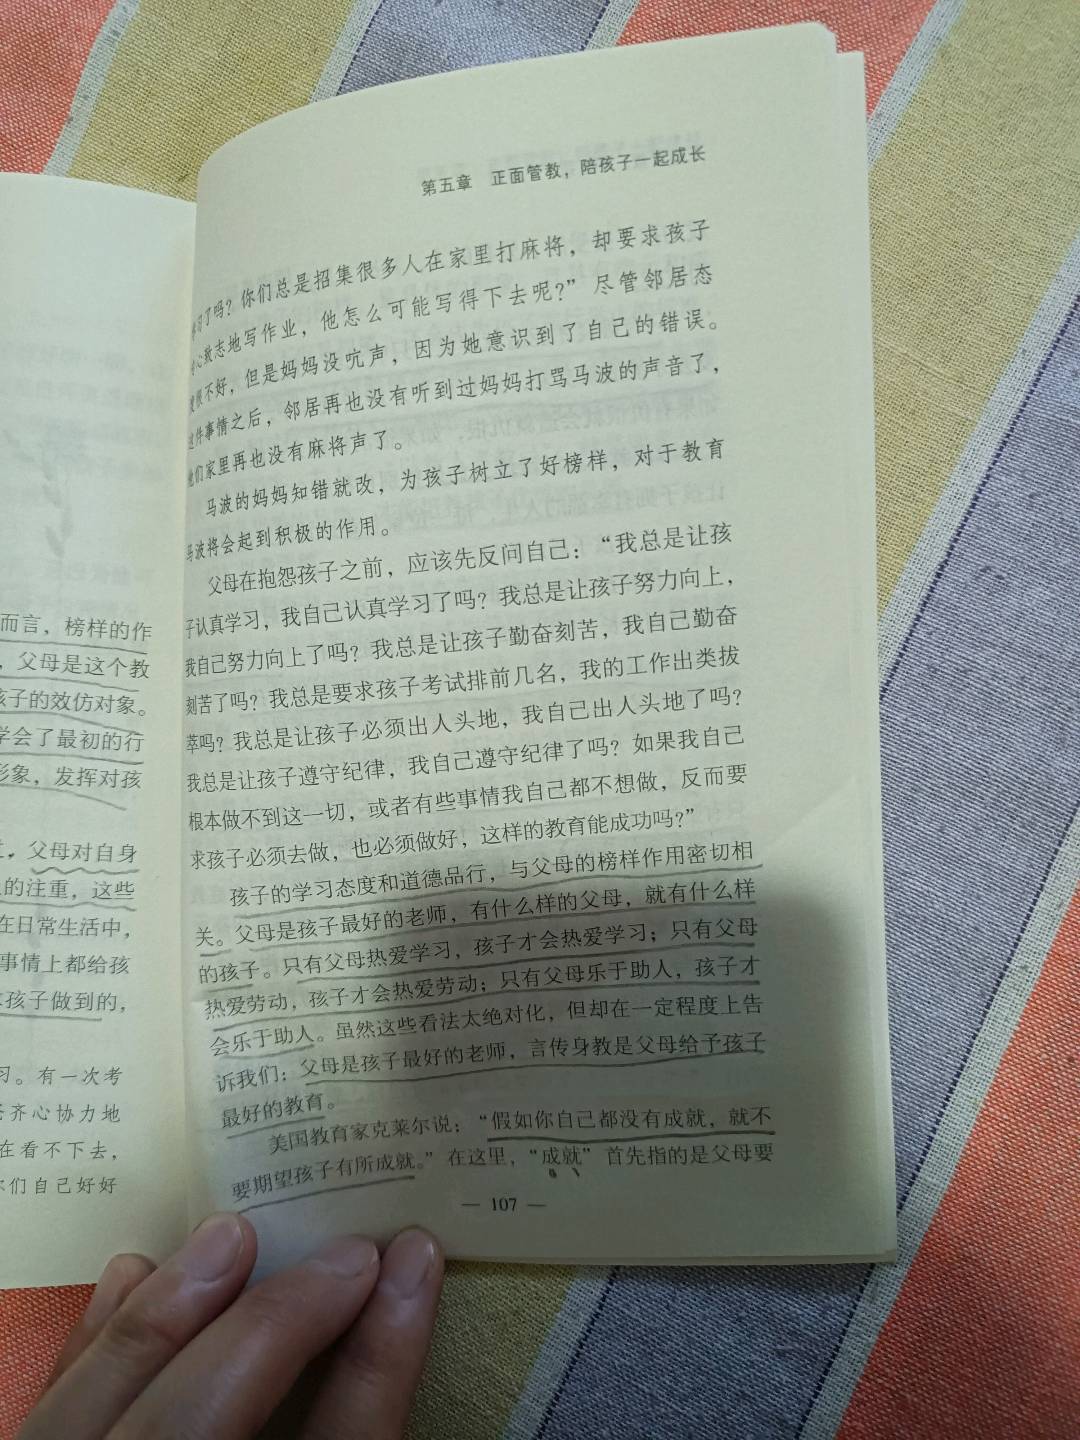 而言，榜样的作
，父母是这个教
孩子的效仿对象。
学会了最初的行
形象，发挥对孩
，父母对自身
的注重，这些
在日常生活中，
事情上都给孩
孩子做到的，
习。有一次考
齐心协力地
在看不下去，
你们自己好好
第五章 正面管教，陪孩子一起成长
习了吗？你们总是招集很多人在家里打麻将，却要求孩子
心致志地写作业，他怎么可能写得下去呢？”尽管邻居态
度很不好，但是妈妈没吭声，因为她意识到了自己的错误。
这件事情之后，邻居再也没有听到过妈妈打骂马波的声音了，
他们家里再也没有麻将声了。
马波的妈妈知错就改，为孩子树立了好榜样，对于教育
马波将会起到积极的作用。
父母在抱怨孩子之前，应该先反问自己：“我总是让孩
子认真学习，我自己认真学习了吗？我总是让孩子努力向上，
我自己努力向上了吗？我总是让孩子勤奋刻苦，我自己勤奋
刻苦了吗？我总是要求孩子考试排前几名，我的工作出类拔
萃吗？我总是让孩子必须出人头地，我自己出人头地了吗？
我总是让孩子遵守纪律，我自己遵守纪律了吗？如果我自己
根本做不到这一切，或者有些事情我自己都不想做，反而要
求孩子必须去做，也必须做好，这样的教育能成功吗？”
孩子的学习态度和道德品行，与父母的榜样作用密切相
关。父母是孩子最好的老师，有什么样的父母，就有什么样
的孩子。只有父母热爱学习，孩子才会热爱学习；只有父母
热爱劳动，孩子才会热爱劳动；只有父母乐于助人，孩子才
会乐于助人。虽然这些看法太绝对化，但却在一定程度上告
诉我们：父母是孩子最好的老师，言传身教是父母给予孩子
最好的教育。
美国教育家克莱尔说：“假如你自己都没有成就，就不
要期望孩子有所成就。”在这里，“成就”首先指的是父母要
— 107 —